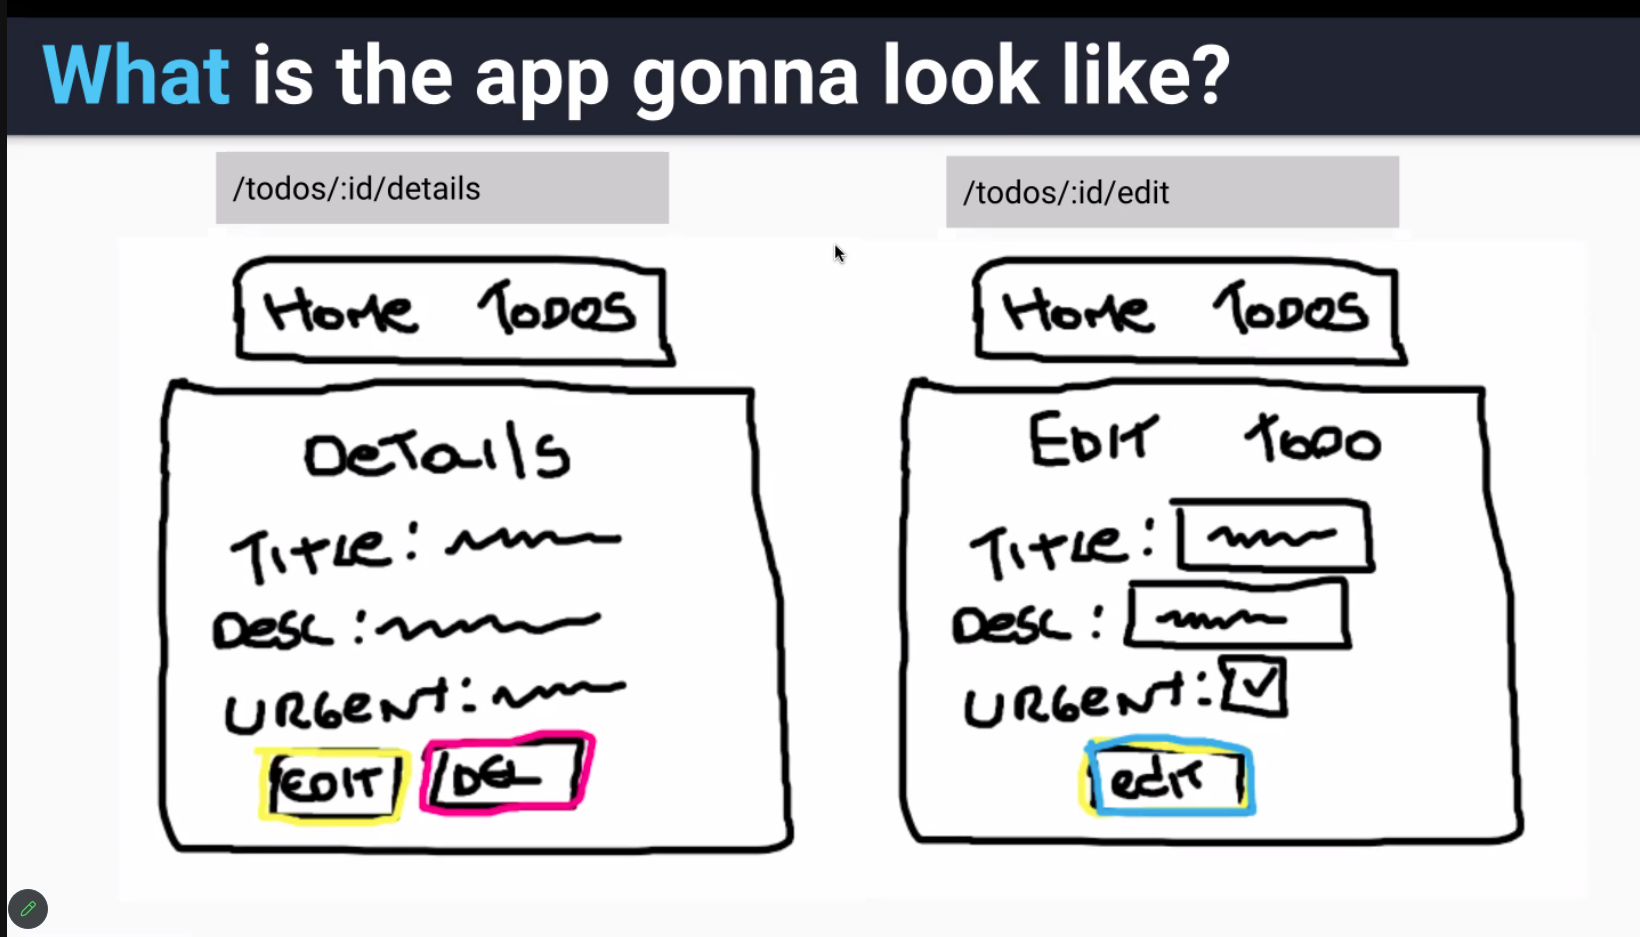 What is the app gonna look like?
/todos/:id/details
Home Todos
Details
Title:
Desc:
Urgent:
EDIT DEL
/todos/:id/edit
Home Todos
EDIT Todo
Title:
Desc:
Urgent:
edit